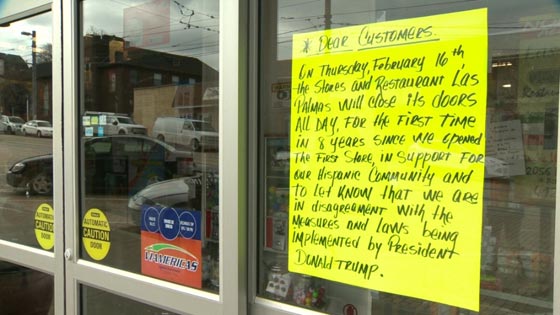 * DEAR CUSTOMERS.
ON THURSDAY, FEBRUARY 16th,
THE STORES AND RESTAURANT LAS
PALMAS WILL CLOSE ITS DOORS
ALL DAY, FOR THE FIRST TIME
IN 8 YEARS SINCE WE OPENED
THE FIRST STORE, IN SUPPORT FOR
OUR HISPANIC COMMUNITY AND
TO LOT KNOW THAT WE ARE
IN DISAGREEMENT WITH THE
MEASURES AND LAWS BEING
IMPLEMENTED BY PRESIDENT
DONALD TRUMP.
AUTOMATIC
CAUTION
DOOR
AUTOMATIC
CAUTION
DOOR
VIAMERICAS